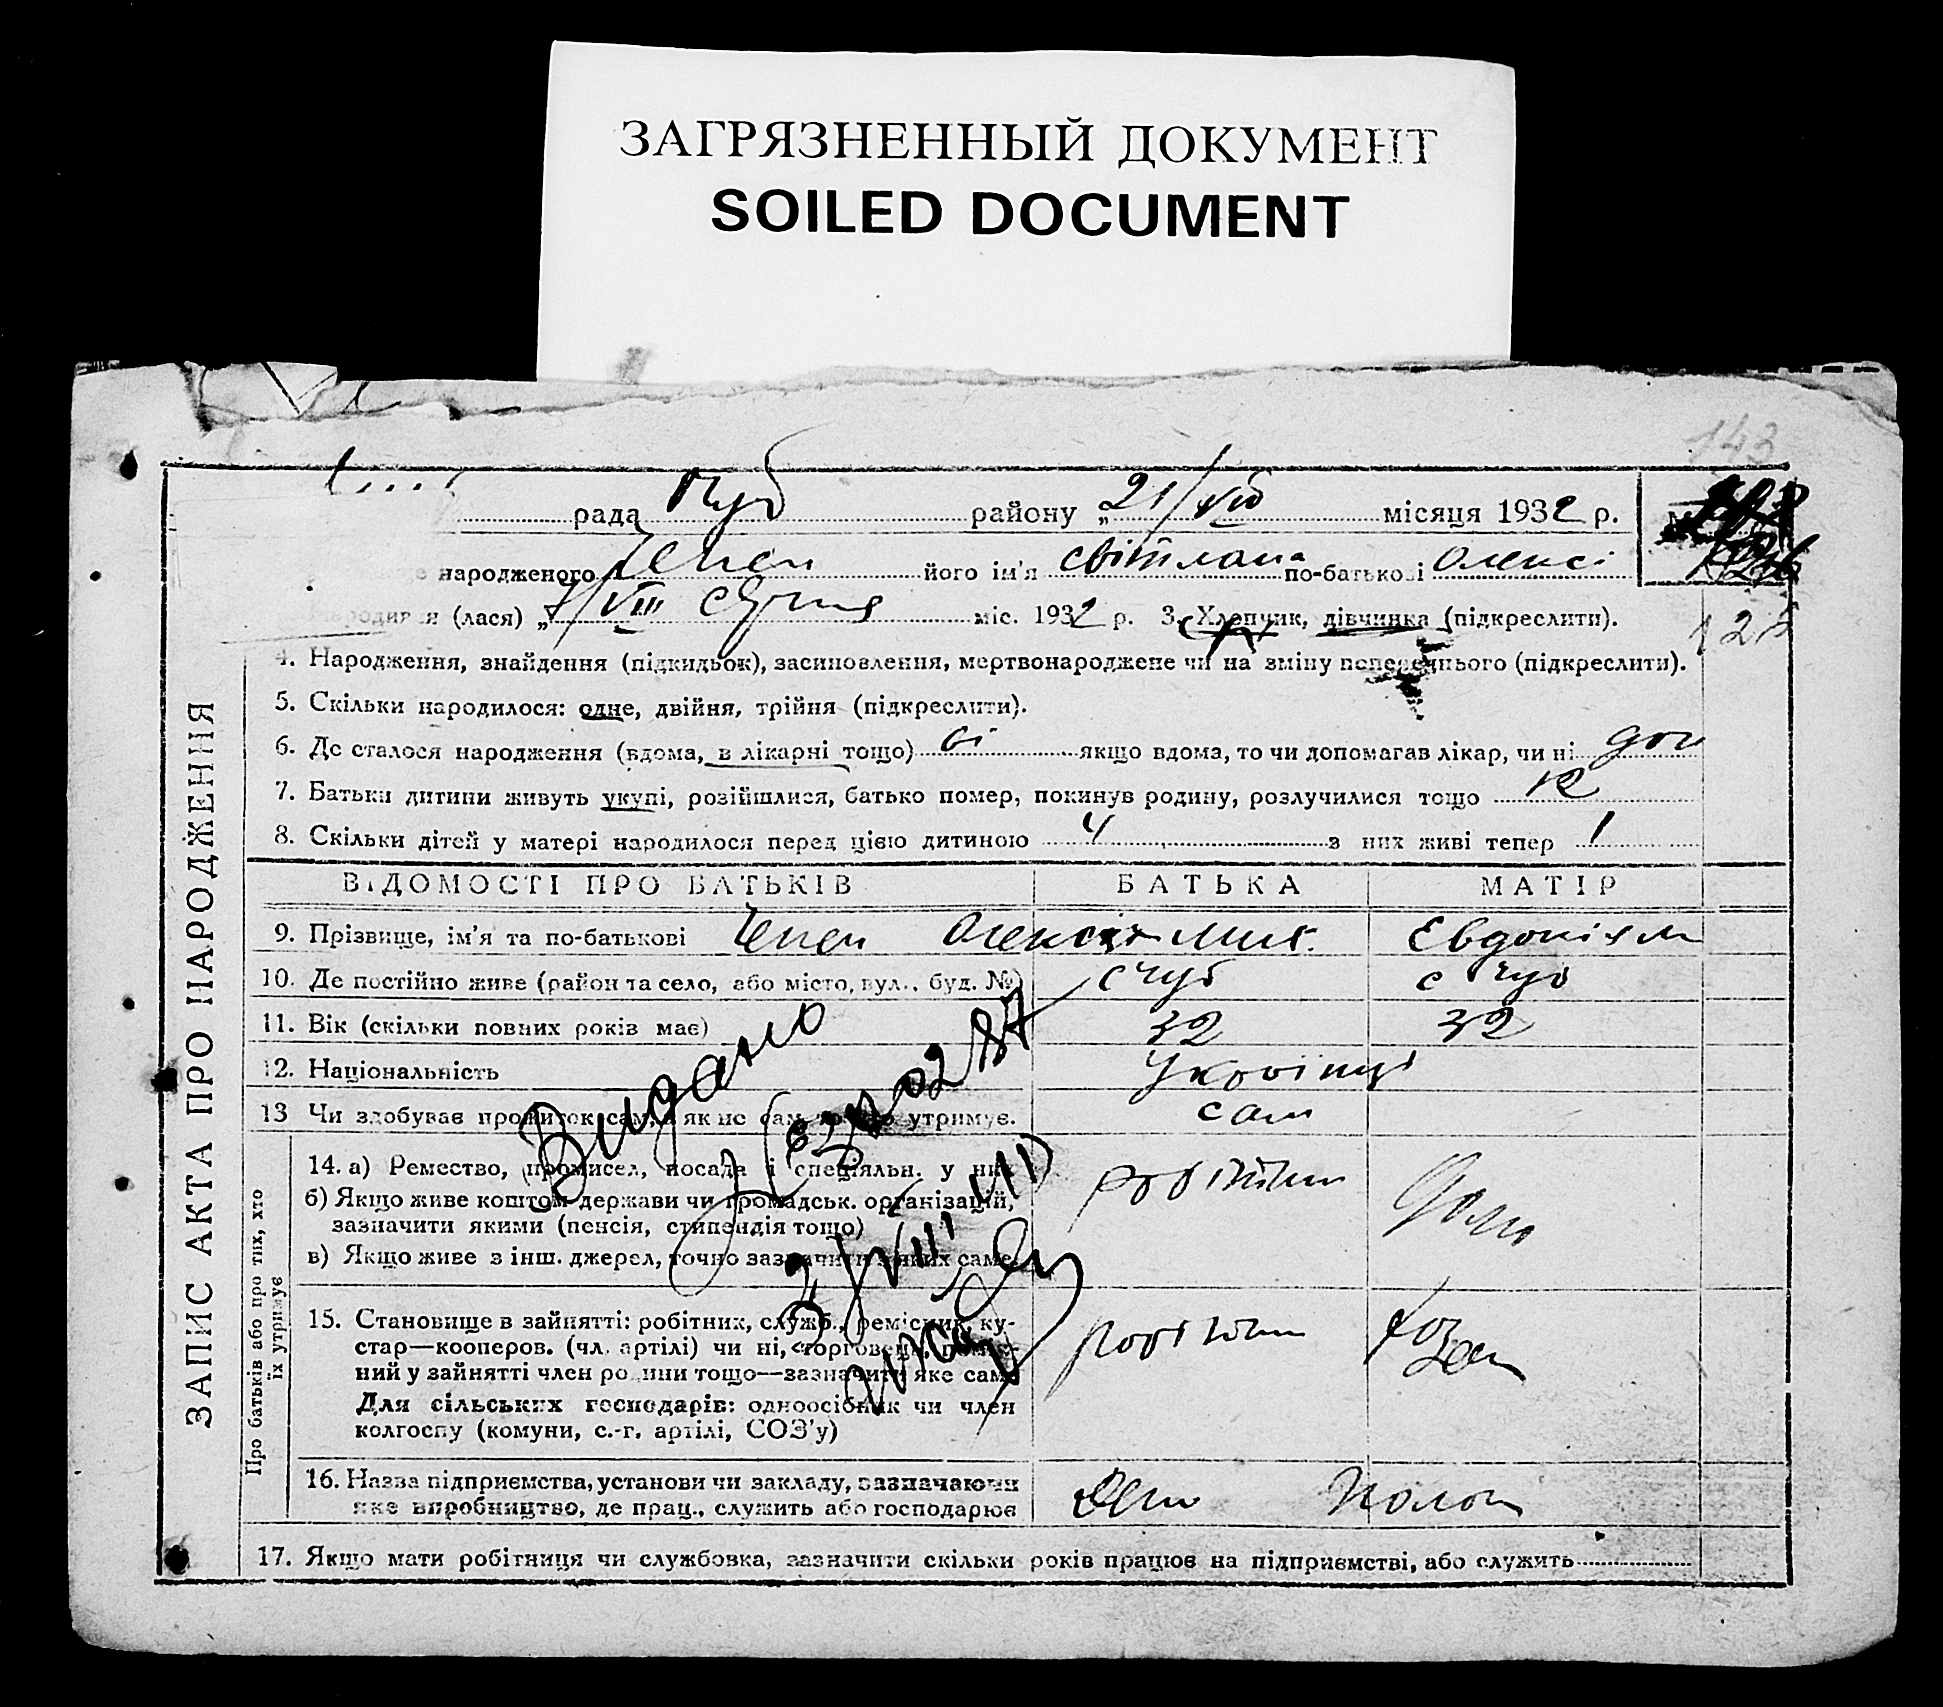 ЗАГРЯЗНЕННЫЙ ДОКУМЕНТ
SOILED DOCUMENT
143
рада Чуб району „21/VIII місяця 1932 р.
народженого Чепел його ім'я Світлана по-батькові Олексі
(лася) „ 7/VIII серпня міс. 1932 р. 3. Хлопчик, дівчинка (підкреслити).
4. Народження, знайдення (підкидьок), засиновлення, мертвонароджене чи на зміну попереднього (підкреслити).
5. Скільки народилося: одне, двійня, трійня (підкреслити).
6. Де сталося народження (вдома, в лікарні тощо) якщо вдома, то чи допомагав лікар, чи ні
7. Батьки дитини живуть укупі, розійшлися, батько помер, покинув родину, розлучилися тощо
8. Скільки дітей у матері народилося перед цією дитиною 4 з них живі тепер 1
ВІДОМОСТІ ПРО БАТЬКІВ БАТЬКА МАТІР
9. Прізвище, ім'я та по-батькові Чепел Олексій Мих. Євдокія М
10. Де постійно живе (район та село, або місто, вул., буд. №) с Чуб с Чуб
11. Вік (скільки повних років має) 32 32
12. Національність Українці
13 Чи здобуває прожиток сам, а як не сам утримує. сам
14. а) Ремество, промисел, посада і спеціяльн. у них робітник Дома
б) Якщо живе коштом держави чи громадськ. організацій,
зазначити якими (пенсія, стипендія тощо)
в) Якщо живе з інш. джерел, точно зазначити з яких саме
15. Становище в зайнятті: робітник, служб., ремісник, ку-
стар—кооперов. (чл. артілі) чи ні, торговець,
ний у зайнятті член родини тощо—зазначити яке саме
робітник
Для сільських господарів: одноосібник чи член
колгоспу (комуни, с.-г. артілі, СОЗ'у)
16. Назва підприємства, установи чи закладу, зазначаючи
яке виробництво, де прац., служить або господарює
17. Якщо мати робітниця чи службовка, зазначити скільки років працює на підприємстві, або служить
ЗАПИС АКТА ПРО НАРОДЖЕННЯ
Про батьків або про тих, хто
їх утримує
Видано